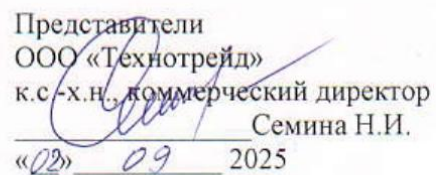 Представители
ООО «Технотрейд»
к.с.-х.н., коммерческий директор
Семина Н.И.
«02» 09 2025